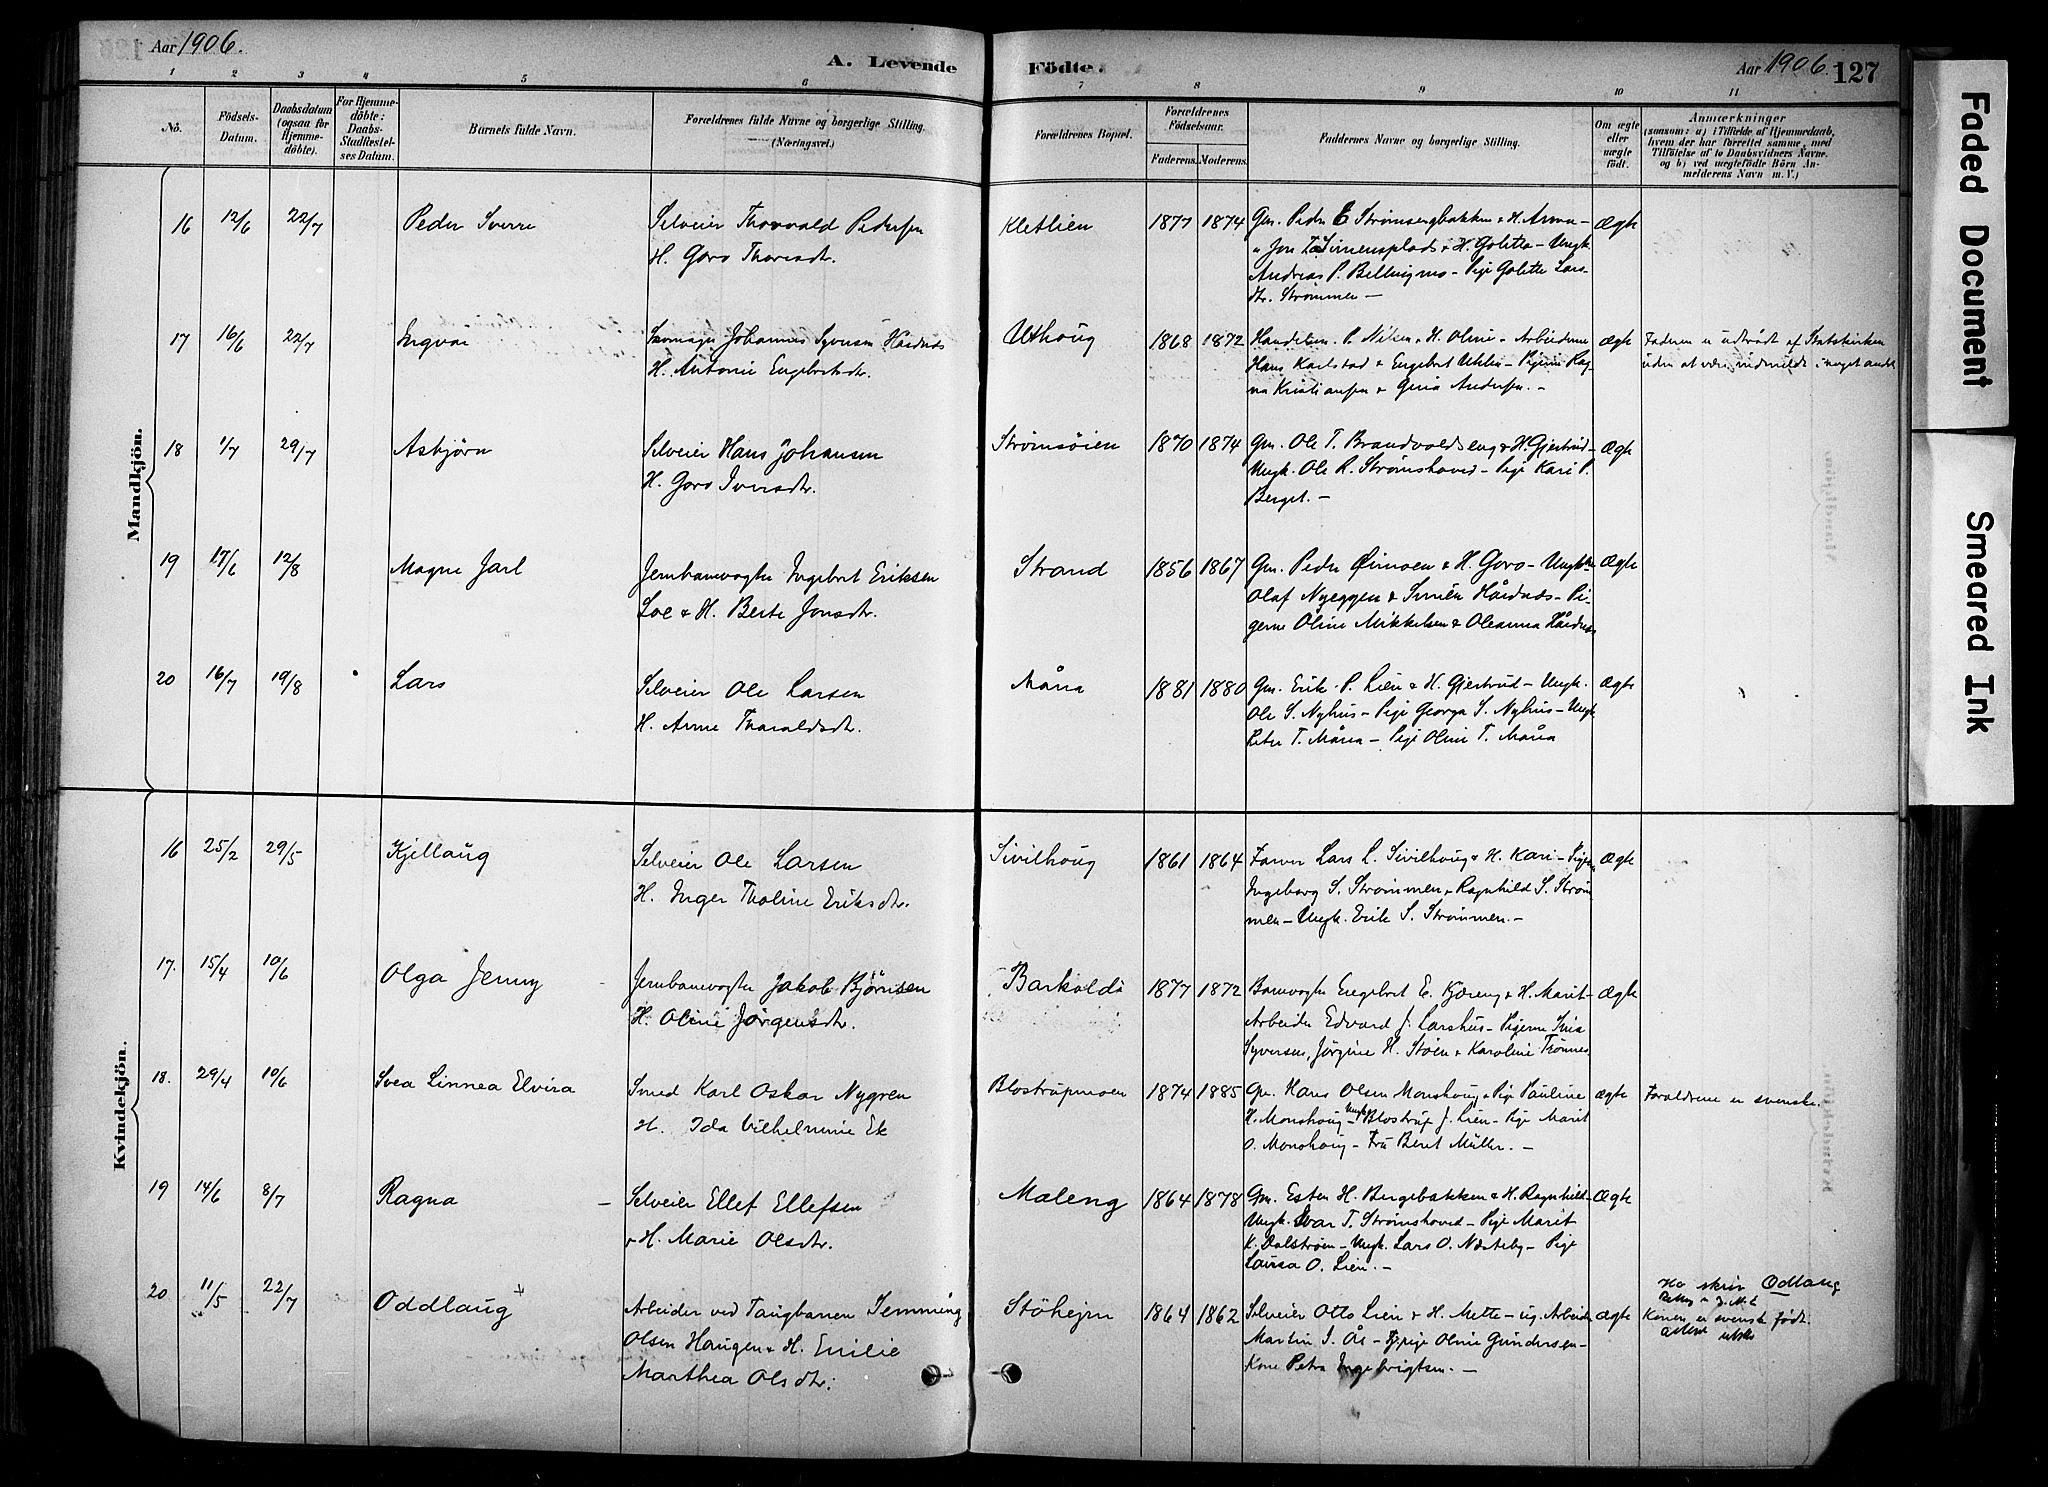 Aar 1906.
A. Levende
Födte.
Aar 1906.
127
1 2 3 4 5 6 7 8 9 10 11
No.
Födsels-
Datum.
Daabsdatum
(ogsaa for
Hjemme-
döbte).
For Hjemme-
döbte:
Daabs-
Stadfæstel-
ses Datum.
Barnets fulde Navn.
Forældrenes fulde Navne og borgerlige Stilling.
(Næringsvei.)
Forældrenes Bopæl.
Forældrenes
Födselsaar.
Faderens. Moderens.
Faddernes Navne og borgerlige Stilling.
Om ægte
eller
uægte
født.
Anmærkninger
(saasom: a) i Tilfælde af Hjemmedaab,
hvem der har forrettet samme, med
Tilföielse af to Daabsvidners Navne.
og b) ved uægtefödte Börn An-
melderens Navn m. V.)
Mandkjön.
16 12/6 22/7 Peder Sverre
Selveier Thorvald Pedersen
H. Goro Thoresdtr.
Kletlien 1877 1874
Gm. Peder E Strømsengbakken & H. Anna-
" Jon Simensplads & H. Golette - Ungk.
Andreas P. Bellingmo - Pige Golette Lars-
dtr. Strømmen -
Ægte
17 16/6 22/7 Ingvar
Johannes Syversen Haardnes
H. Antonie Engebretsdtr.
Uthoug 1868 1872
Handelsm. P. Nilsen & H. Oline - Arbeiderne
Hans Karlstad & Engebret Uhlen - Pigerne Rag-
na Kristiansen & Gina Andersen. -
Ægte
Faderen er udtraadt af Statskirken
uden at være indmeldt i noget andet
18 1/7 29/7 Asbjørn
Selveier Hans Johansen
H. Goro Iversdtr.
Strømsøien 1870 1874
Gm. Ole T. Brandvoldseng & H. Gjertrud-
Ungk. Ole R. Strømshoved - Pige Kari P.
Berget. -
Ægte
19 17/6 12/8 Magne Jarl
Jernbanevogter Ingebret Eriksen
Loe & H. Berte Jonsdtr.
Strand 1856 1867
Gm. Peder Øimoen & H. Goro - Ungk.
Olaf Nyeggen & Simen Haardnes - Pi-
gerne Oline Mikkelsen & Oleanna Haardnes
Ægte
20 16/7 19/8 Lars
Selveier Ole Larsen
H. Anne Tharaldsdtr.
Måna 1881 1880
Gm. Erik P. Lien & H. Gjertrud - Ungk.
Ole S. Nyhus - Pige Georga S. Nyhus - Ungk.
Peter T. Måna - Pige Oline T. Måna
Ægte
Kvindekjön.
16 25/2 29/5 Kjellaug
Selveier Ole Larsen
H. Inger Tholine Eriksdtr.
Sivilhoug 1861 1864
Farver Lars L. Sivilhoug & H. Kari - Pigerne
Ingeborg S. Strømmen & Ragnhild S. Strøm-
men - Ungk. Erik S. Strømmen. -
Ægte
17. 15/4 10/6 Olga Jenny
Jernbanevogter Jakob Bjørnsen
H. Oline Jørgensdtr.
Barkald 1877 1872
Banevogter Engebret E. Kjæreng & H. Marit-
Arbeider Edvard J. Larshus - Pigerne Inia
Syversen, Jørgine H. Støen & Karoline Trønnes
Ægte
18. 29/4 10/6 Svea Linnea Elvira
Smed Karl Oskar Nygren
H. Ida Vilhelmine Ek
Blostrupmoen 1874 1885
Gm. Hans Olsen Monshoug & Pige Pauline
H. Monshoug - Ungk. Blostrup J. Lien - Pige Marit
O. Monshoug - Fru Beret Müller. -
Ægte
Forældrene er svenske.
19 14/6 8/7 Ragna
Selveier Ellef Ellefsen
& H. Marie Olsdtr.
Maleng 1864 1878
Gm. Esten H. Bergebakken & H. Ragnhild-
Ungk. Ivar T. Strømshoved - Pige Marit
K. Dalstrøen - Ungk. Lars O. Næsteby - Pige
Laura O. Lien. -
Ægte
20 11/5 22/7 Oddlaug
Arbeider ved Taugbanen Jemming
Olsen Haugen & H. Emilie
Marthea Olsdtr:
Støhejm 1864 1862
Selveier Otto Lien & H. Mette - ug. Arbeider
Martin J. Ås - Pige Oline Gundersen-
Kone Petra Ingebrigtsen. -
Ægte
skriv Odlaug
Konen er svensk født.
Faded Document
Smeared Ink